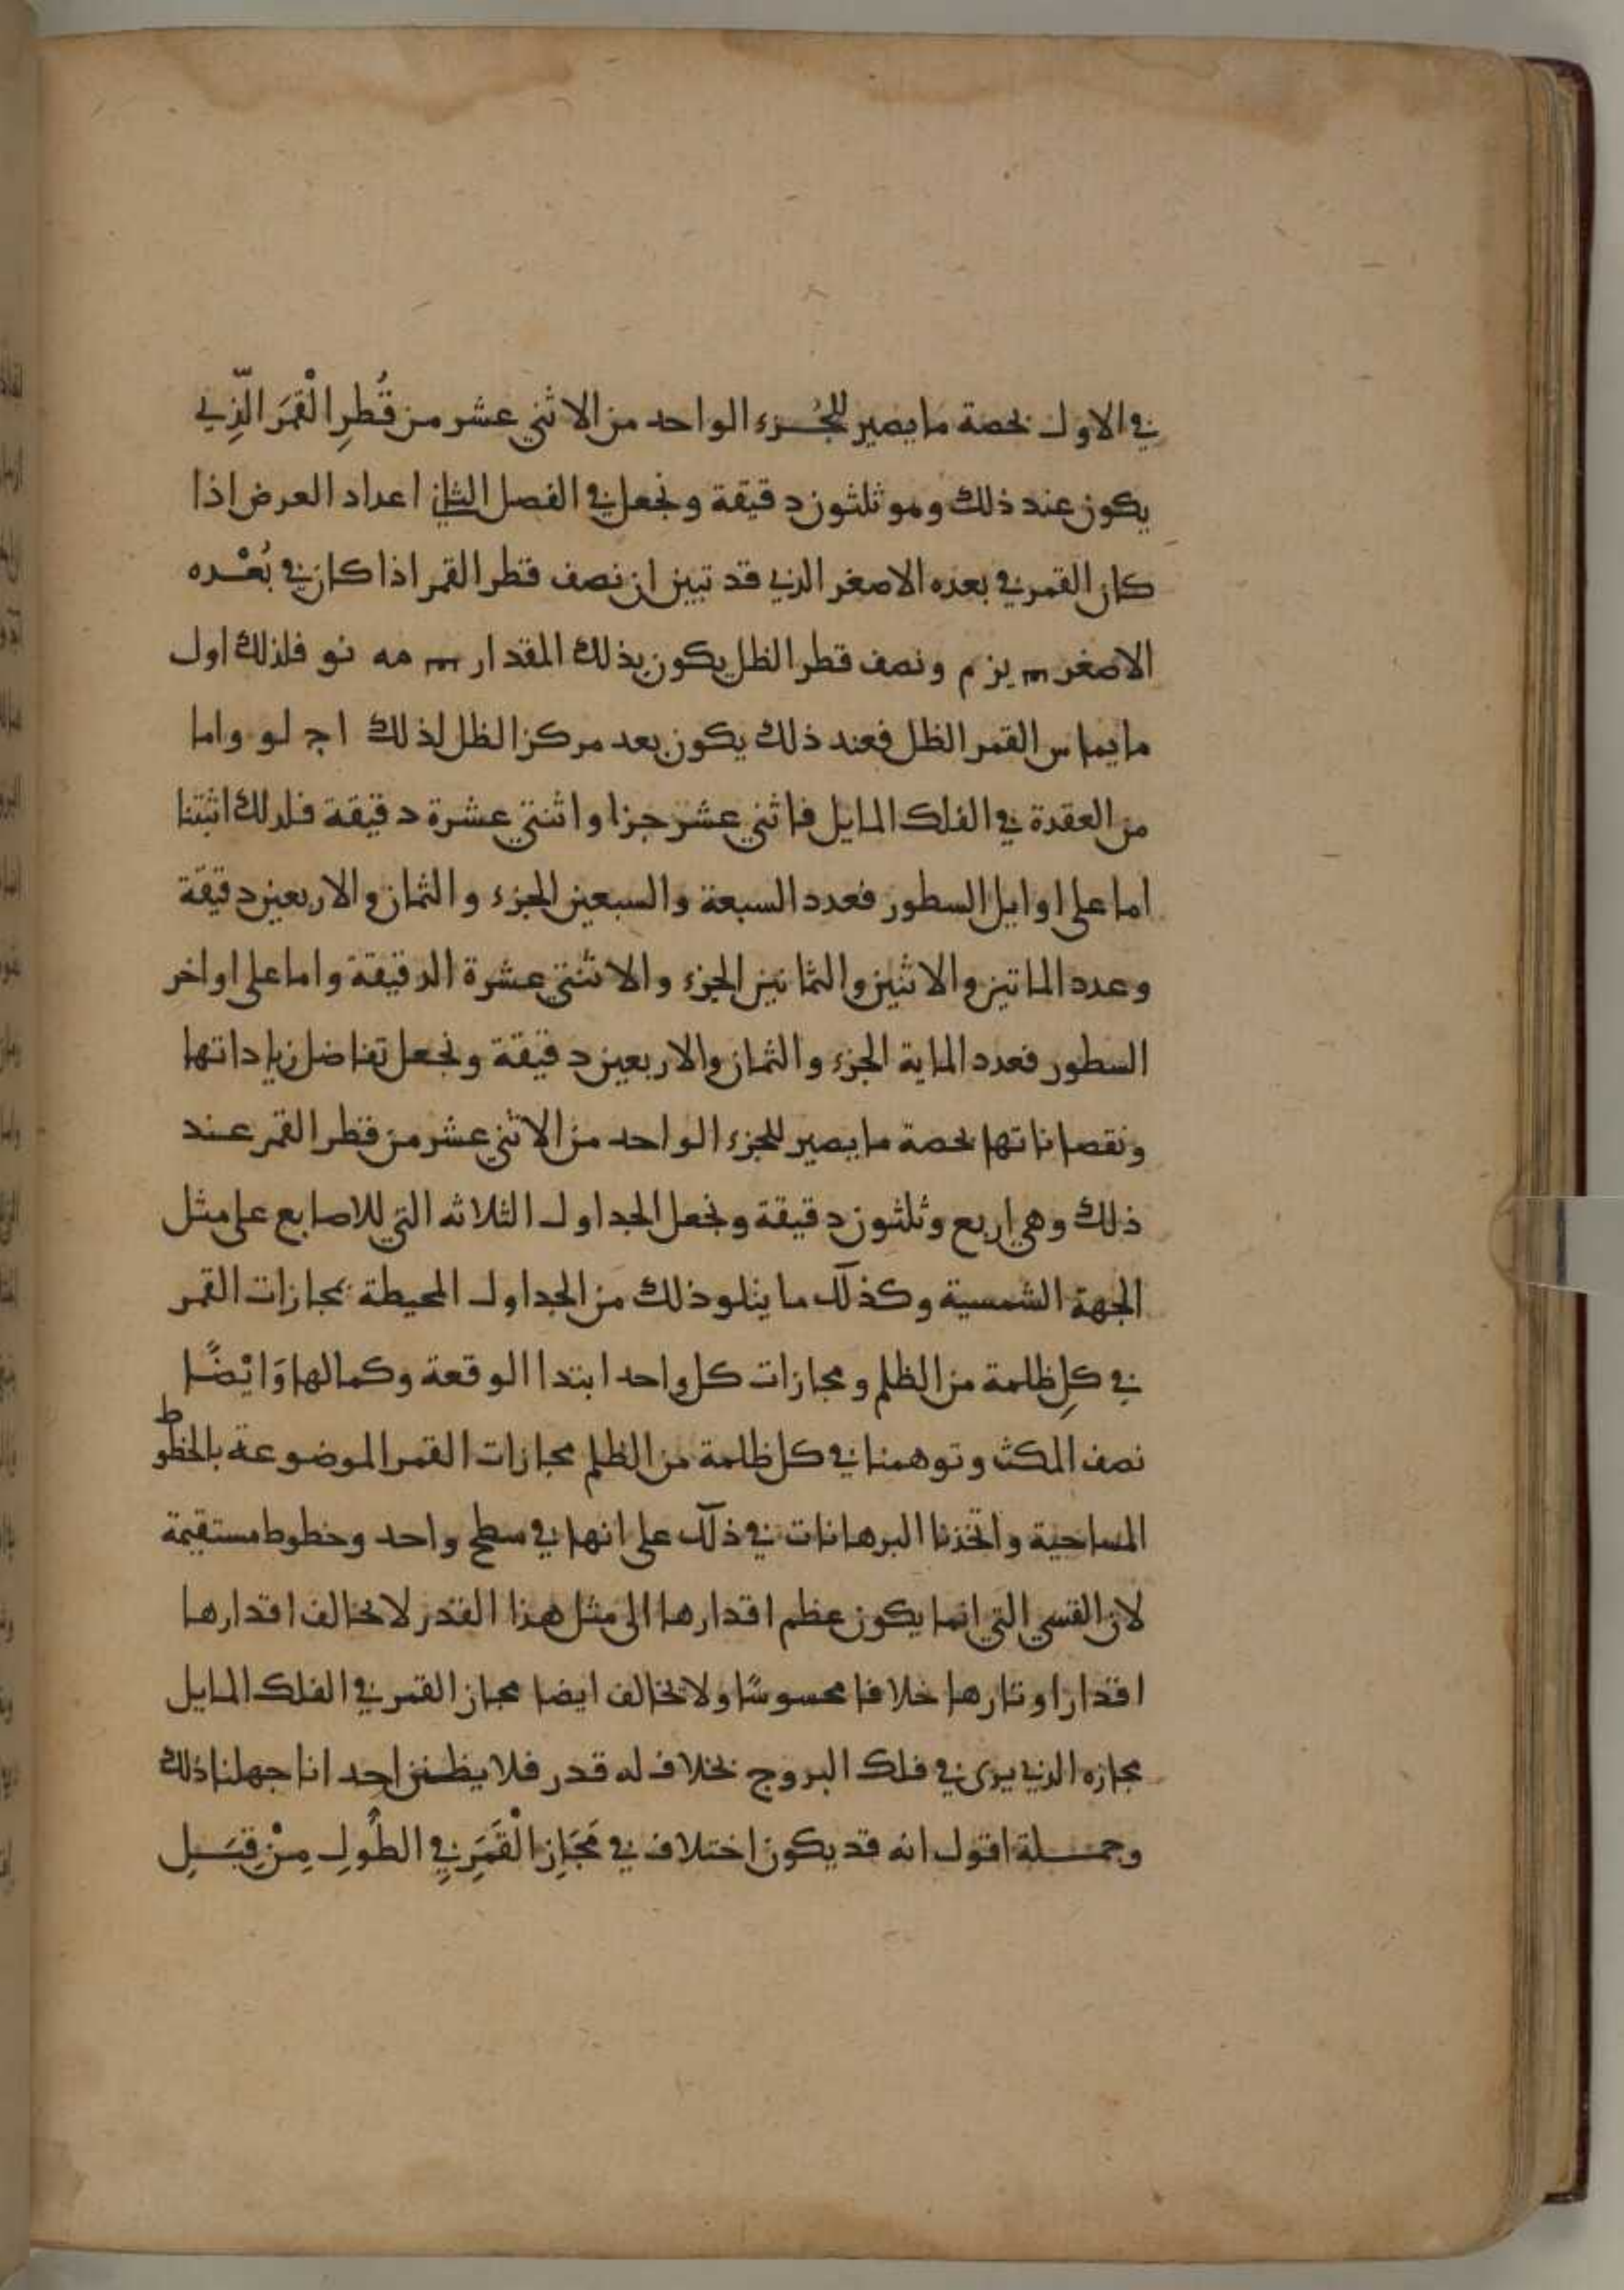 في الاول بحصة ما يصير للجُزء الواحد من الاثني عشر من قُطرِ الْقمَر الّذِي
يكون عند ذلك وهو ثلثون دقيقة ونجعل في الفصل الثاني اعداد العرض اذا
كان القمر في بعده الاصغر الذي قد تبين ان نصف قطر القمر اذا كان في بُعْده
الاصغر يز م ونصف قطر الظل يكون بذلك المقدار مه نو فلذلك اول
ما يماس القمر الظل فعند ذلك يكون بعد مركز الظل لذلك ا ج لو واما
من العقدة في الفلك المايل فاثني عشر جزا واثنتي عشرة دقيقة فلذلك اثبتنا
اما على اوايل السطور فعدد السبعة والسبعين الجزء والثمان والاربعين دقيقة
وعدد الماتين والاثنين والثمانين الجزء والاثنتي عشرة الدقيقة واما على اواخر
السطور فعدد الماية الجزء والثمان والاربعين دقيقة ونجعل تفاضل زياداتها
ونقصاناتها بحصة ما يصير للجزء الواحد من الاثني عشر من قطر القمر عند
ذلك وهي اربع وثلثون دقيقة ونجعل الجداول الثلاثه التي للاصابع على مثل
الجهة الشمسية وكذلك ما يتلو ذلك من الجداول المحيطة بمجازات القمر
في كلِ ظلمة من الظلم ومجازات كل واحد ابتدا الوقعة وكمالها وَايْضًا
نصف المكث وتوهمنا في كل ظلمة من الظلم مجازات القمر الموضوعة بالخطوط
المساحية واتخذنا البرهانات في ذلك على انها في سطح واحد وخطوط مستقيمة
لان القسي التي انما يكون عظم اقدارها الى مثل هذا القدر لا تخالف اقدارها
اقدار اوتارها خلافا محسوسًا ولا تخالف ايضا مجاز القمر في الفلك المايل
مجازه الذي يرى في فلك البروج بخلاف له قدر فلا يظنن احد انا جهلنا ذلك
وجملة اقول انه قد يكون اختلاف في مَجَازِ الْقَمَرِ فِي الطُولِ مِنْ قِبَلِ